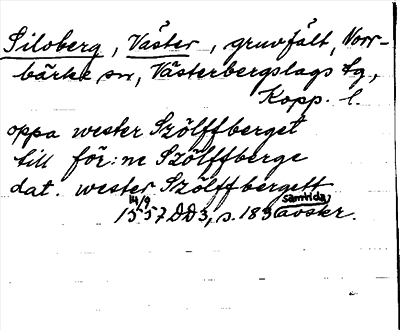 Siloberg, Väster, gruvfält, Norr-
bärke sn, Västerbergslags tg,
Kopp. l.
oppa wester Szölffberget
till för:ne Szölffberge
dat. wester Szölffbergett
14/9 samtida
1557 DD3, s. 183 avskr.